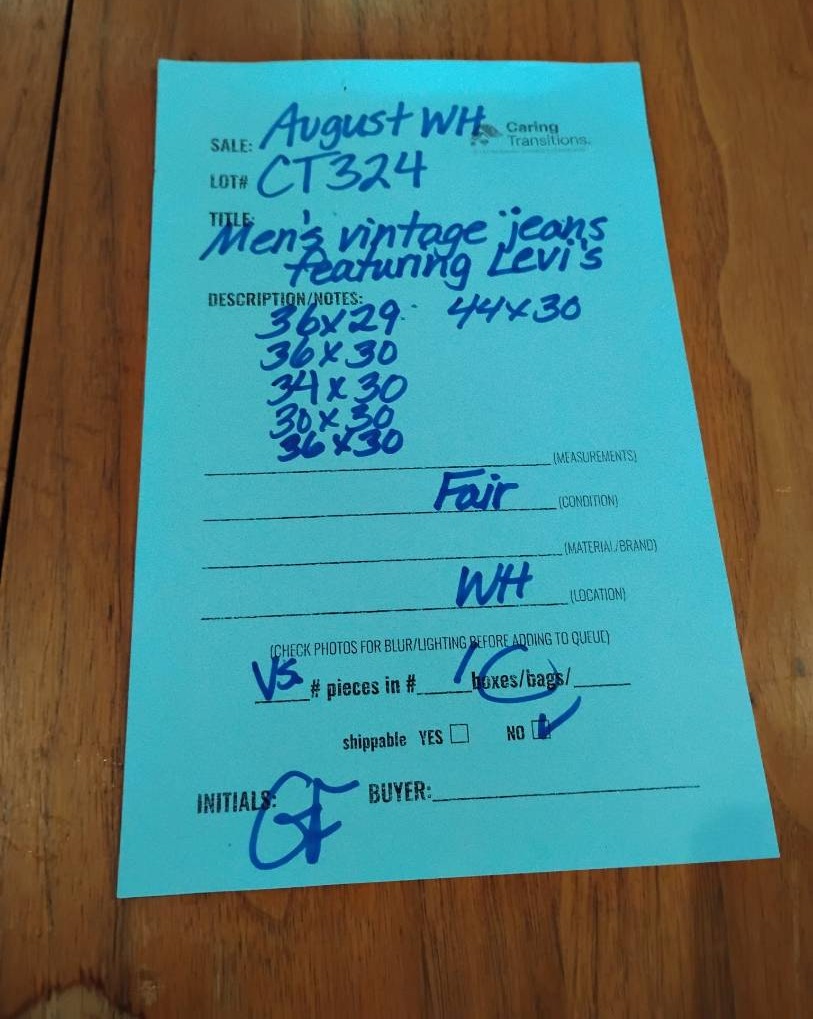 SALE: August WH Caring
Transitions.
LOT# CT324
TITLE:
Men's vintage jeans
featuring Levi's
DESCRIPTION/NOTES:
36x29 44x30
36x30
34x30
30x30
36x30
(MEASUREMENTS)
Fair (CONDITION)
(MATERIAL/BRAND)
WH (LOCATION)
(CHECK PHOTOS FOR BLUR/LIGHTING BEFORE ADDING TO QUEUE)
VS # pieces in # 1 boxes/bags/
shippable YES NO
INITIALS: GF BUYER: